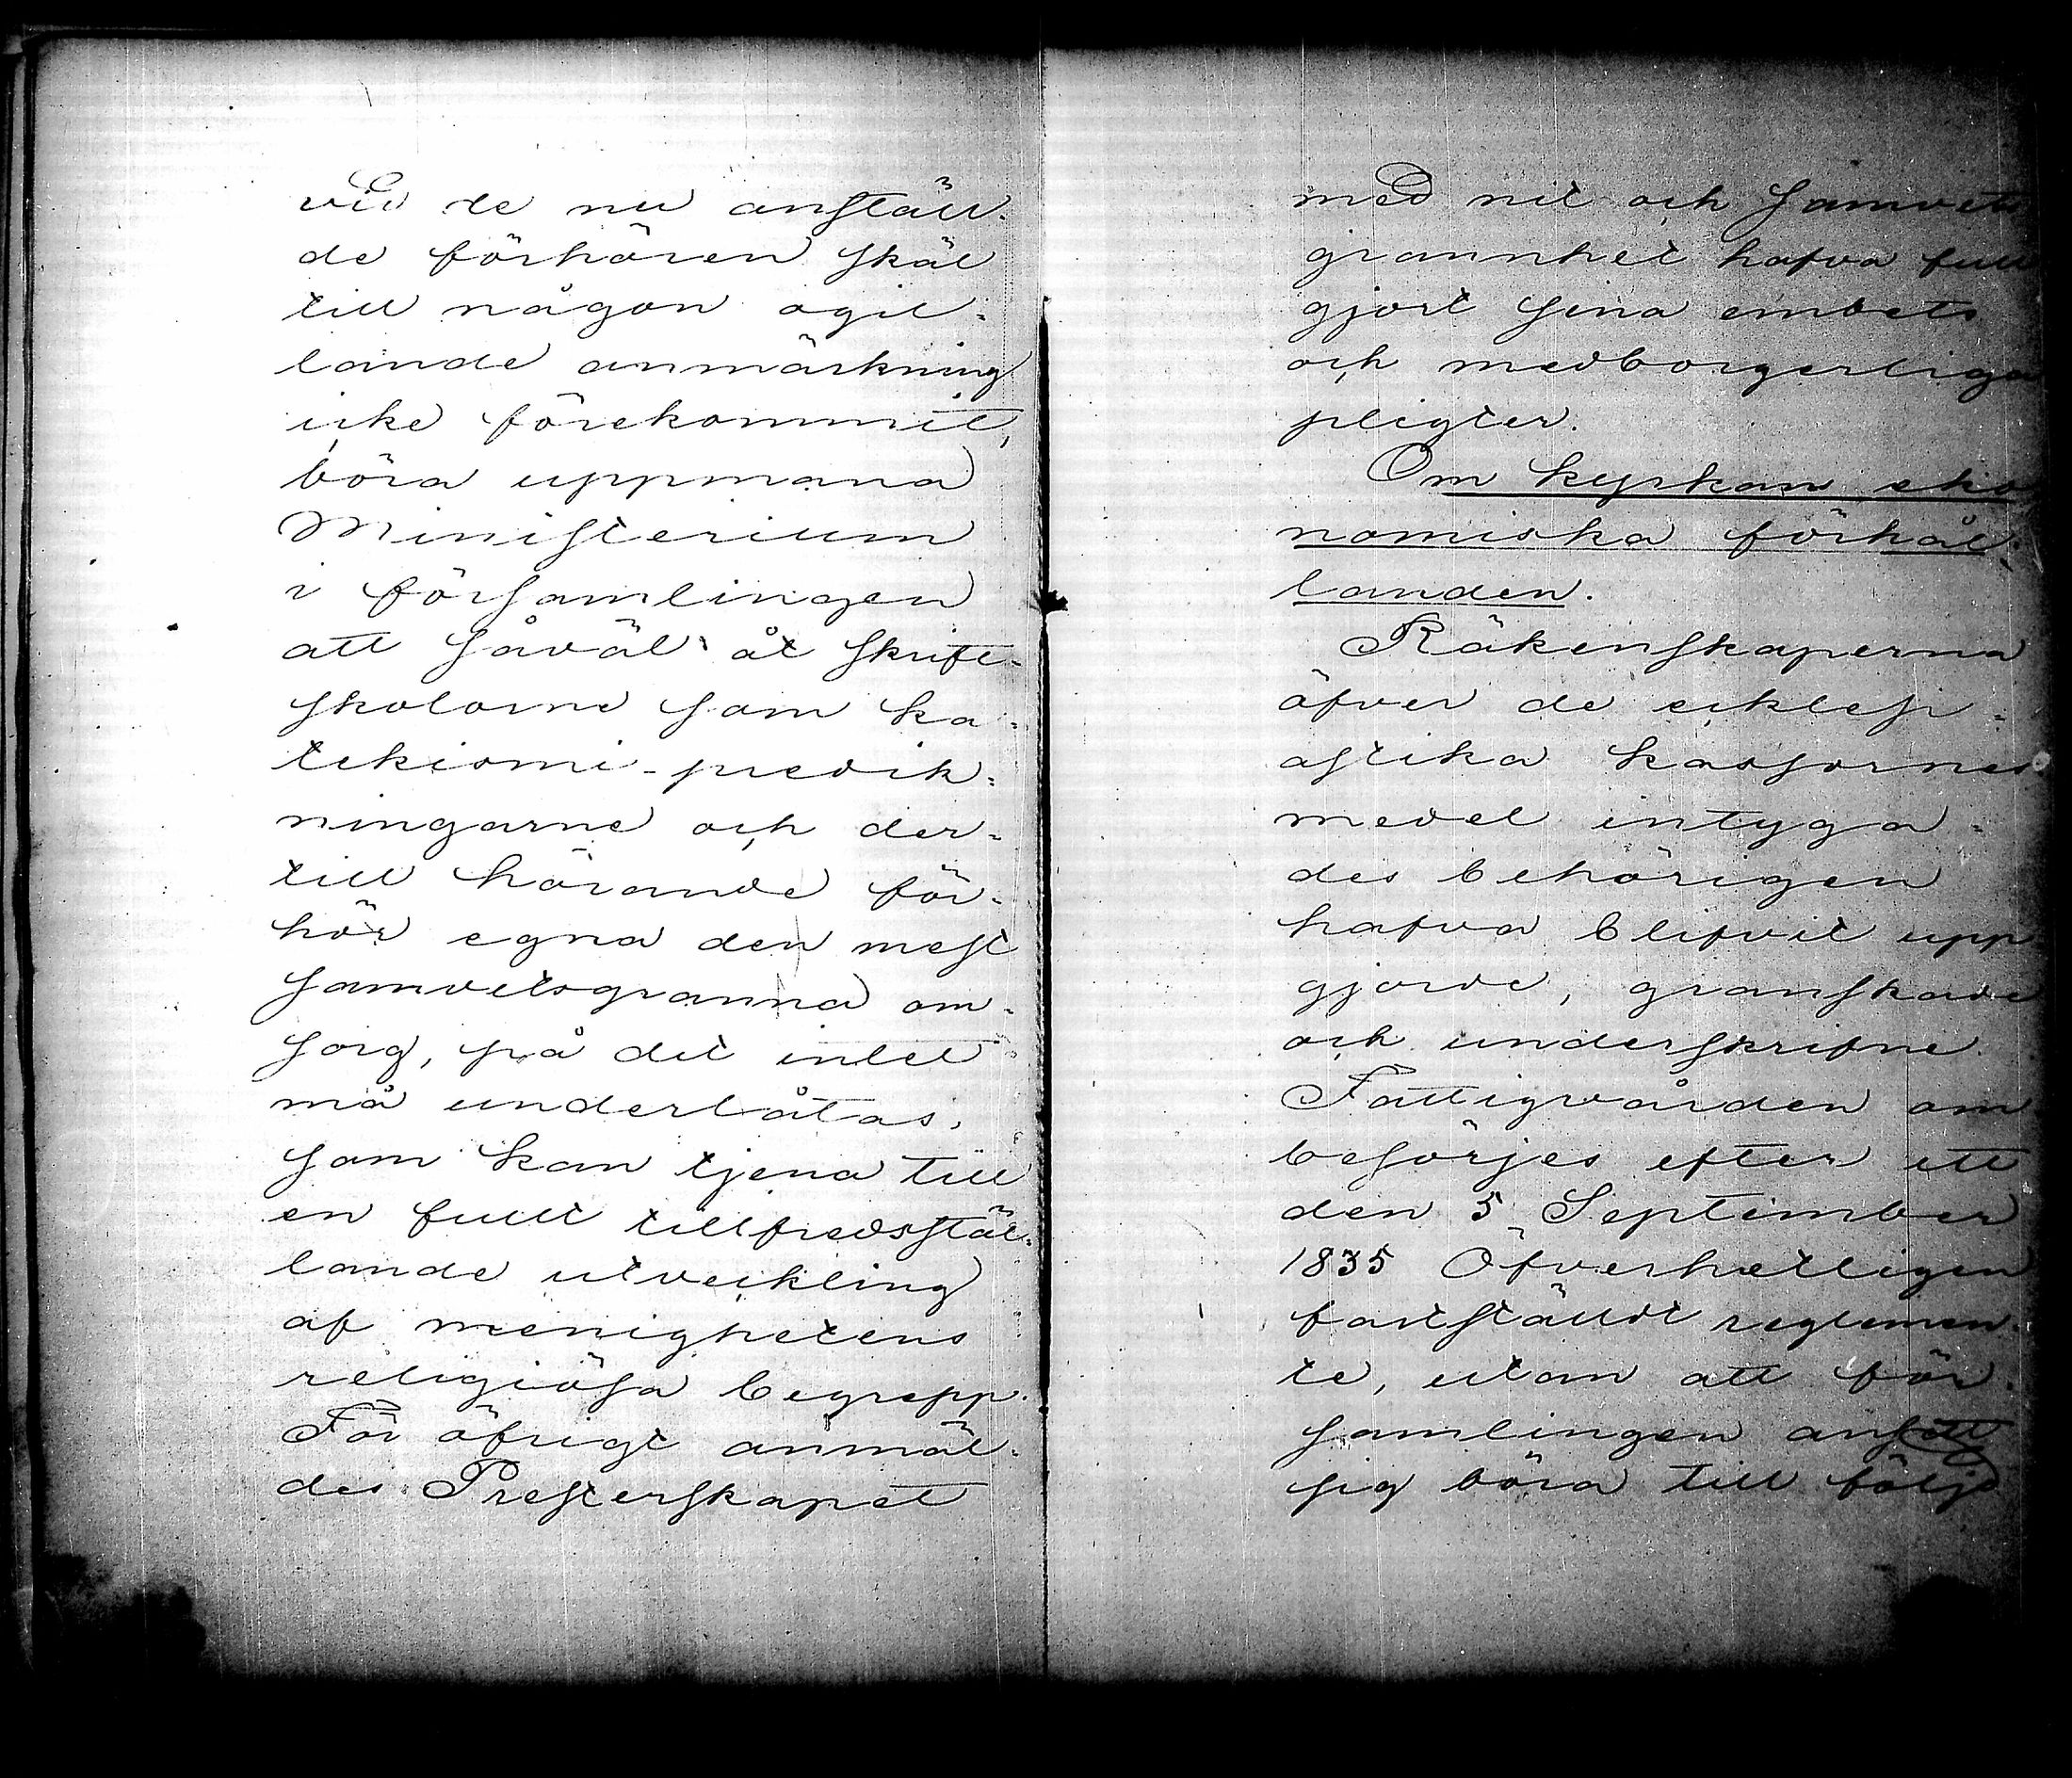 vid de nu anställ-
de förhören skäl
till någon ogil-
lande anmärkning
icke förekommit,
böra uppmana
Ministerium
i församlingen
att såväl åt skrift-
skolorne som ka-
tekismi-predik-
ningarne och der-
till hörande för-
hör egna den mest
samvetsgranna om-
sorg, på det intet
må underlåtas,
som kan tjena till
en fullt tillfredsstäl-
lande utveckling
af menighetens
religiösa begrepp.
För öfrigt anmäl-
des Presterskapet
med nit och samvets
grannhet hafva full
gjort sina embets
och medborgerliga
pligter.
Om kyrkans eko-
nomiska förhål-
landen.
Räkenskaperna
öfver de ecklesi-
astika kassornes
medel intyga-
des behörigen
hafva blifvit upp
gjorde, granskade
och underskrifne.
Fattigvården om
besörjes efter ett
den 5 September
1835 Öfverhetligen
fastställdt reglemen-
te, utan att för-
samlingen ansett
sig böra till följd